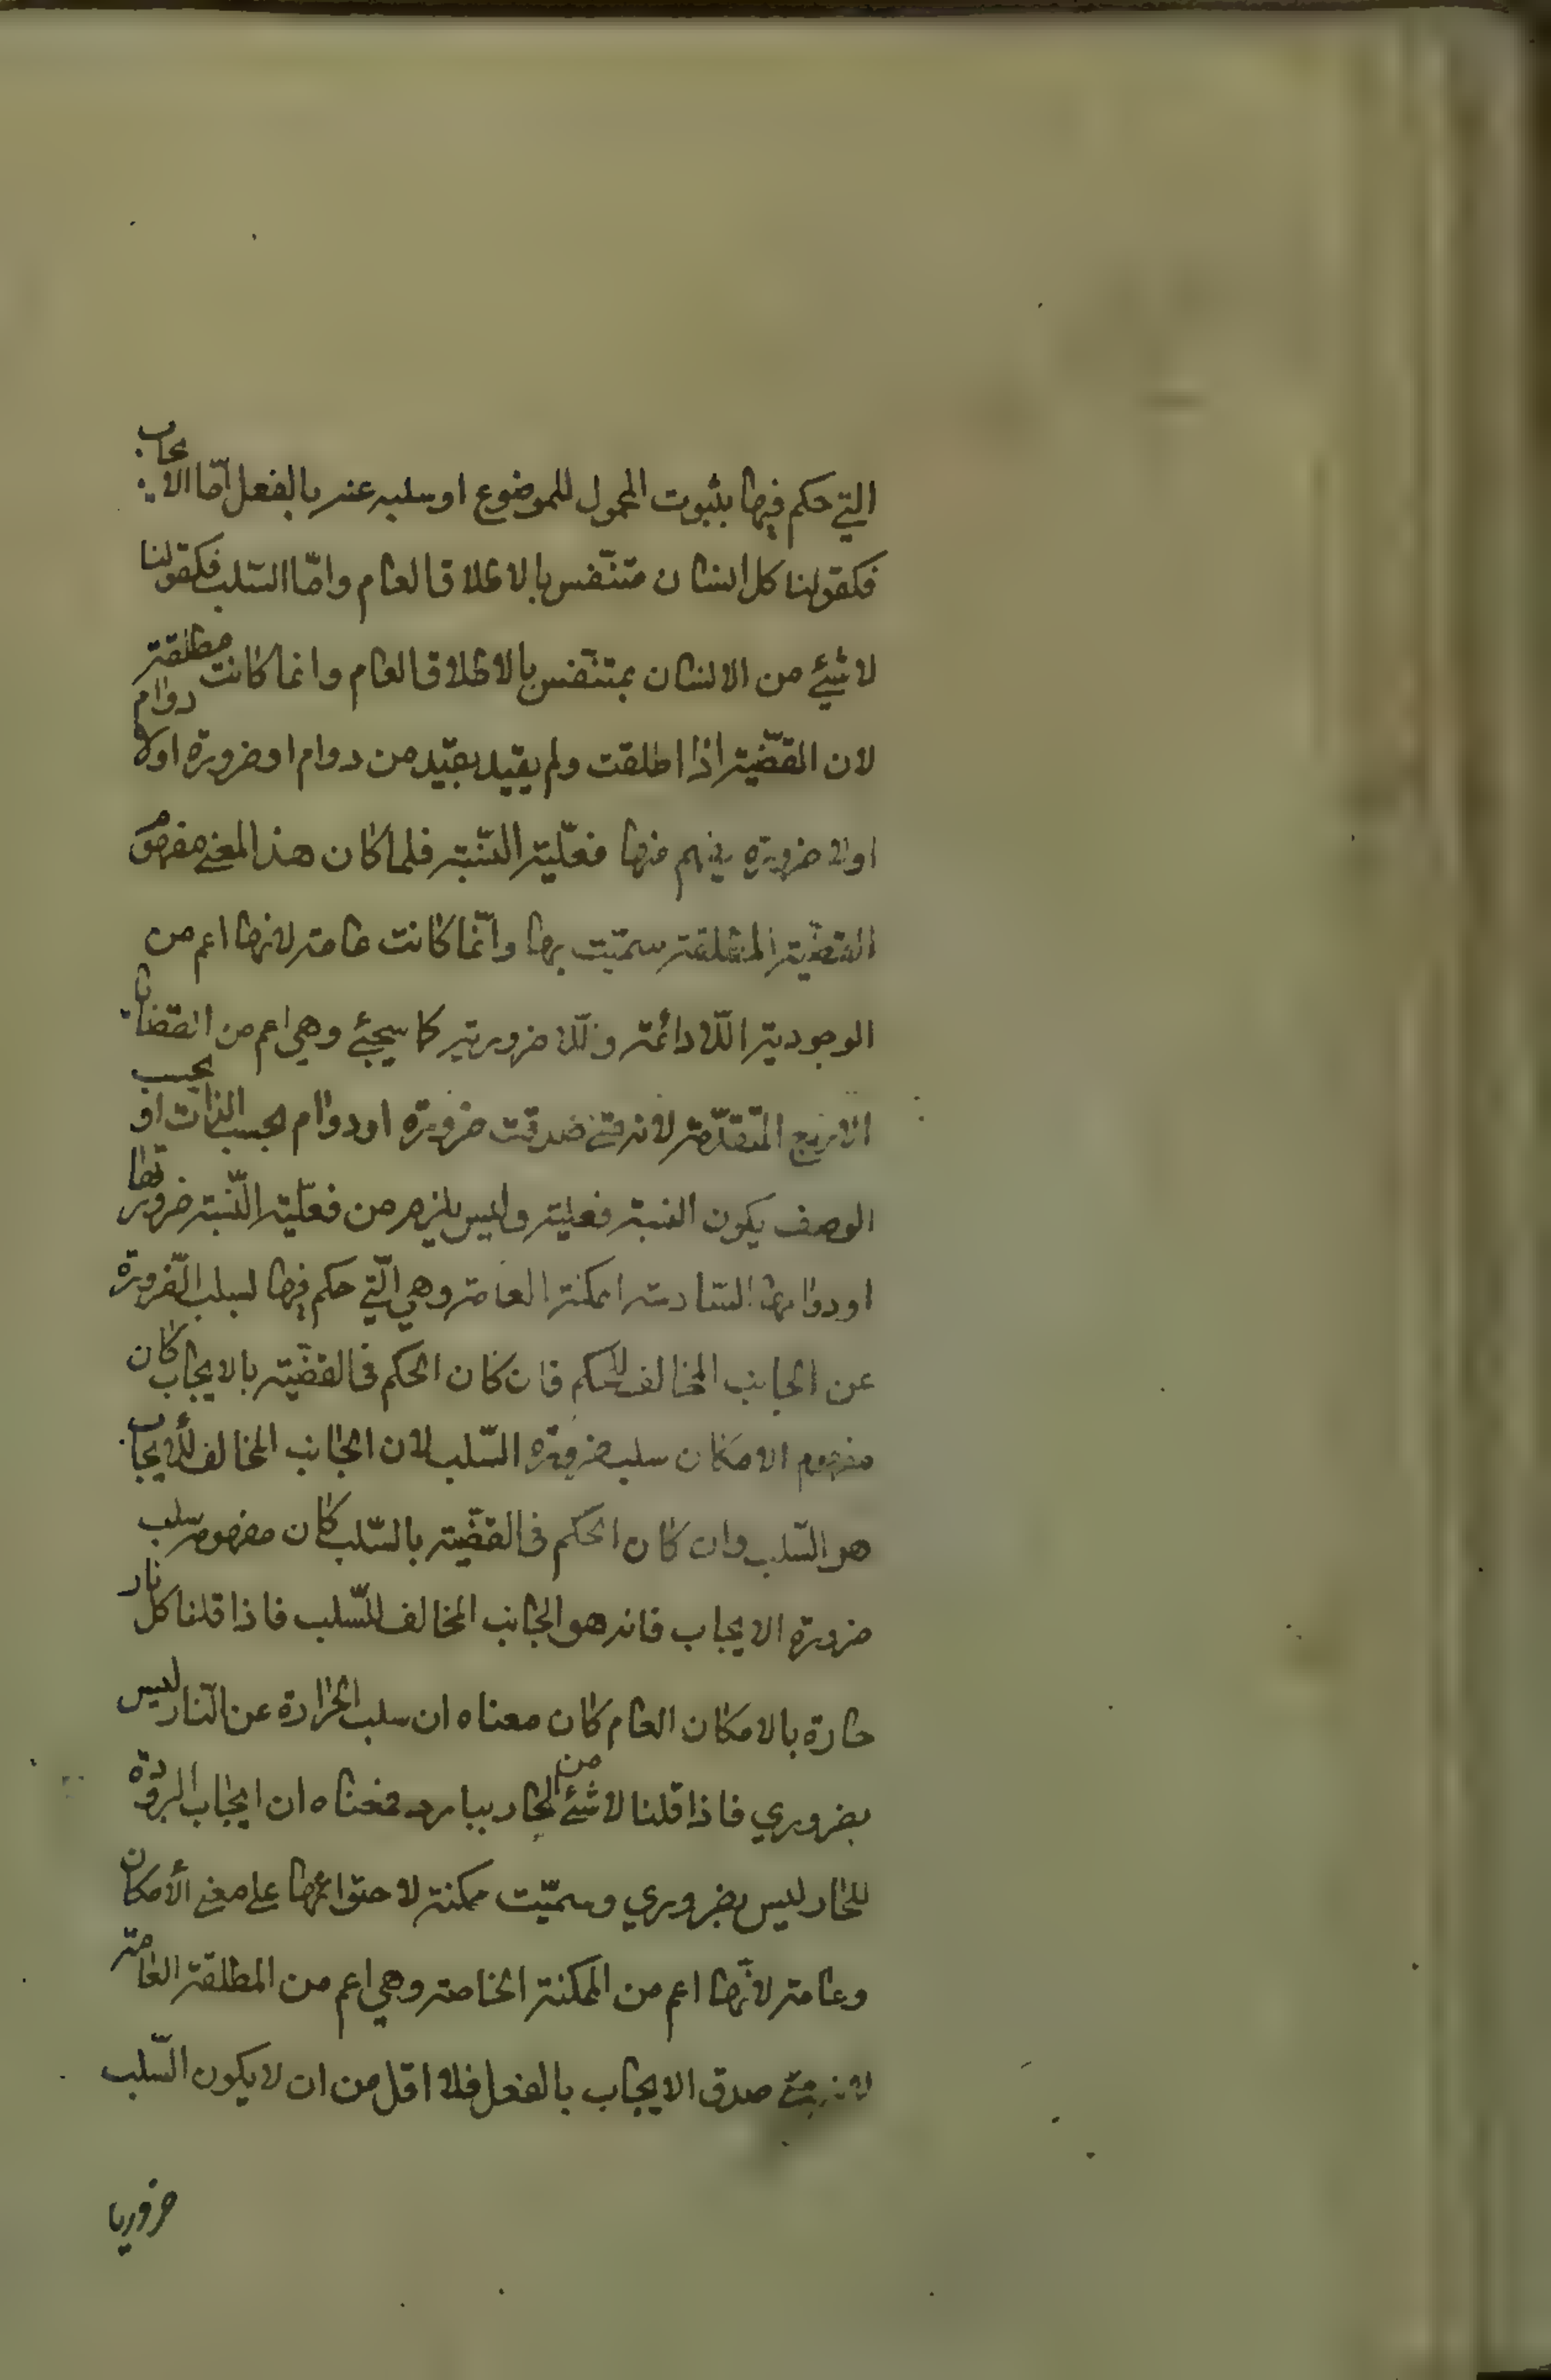 التي حكم فيها بثبوت المحمول للموضوع او سلبه عنه بالفعل امّا الايجاب
فكقولنا كل انسان متنفّس بالاطلاق العام وامّا السّلب فكقولنا
لا شيئ من الانسان بمتنفّس بالاطلاق العام وانما كانت مطلقة
لان القضّية اذا اطلقت ولم يقيد بقيد من دوام او ضرورة او لا دوام
او لا ضرورة يفهم منها فعلّية النّسبة فلما كان هذا المعنى مفهوم
القضّية المطلقة سميّت بها وانّما كانت عامة لانها اعم من
الوجودية اللّا دائمة واللّا ضرورية كما سيجئ وهي اعم من القضايا
الاربع المتقدّمة لانه متى صدقت ضرورة او دوام بحسب الذات او بحسب
الوصف يكون النسبة فعلية وليس يلزم من فعلّية النّسبة ضرورتها
او دوامها السّادسة الممكنة العامة وهي الّتي حكم فيها لسلب الضّرورة
عن الجانب المخالف للحكم فان كان الحكم في القضّية بالايجاب كان
مفهوم الامكان سلب ضرورة السّلب لان الجانب المخالف للأيجاب
هو السّلب وان كان الحكم في القضّية بالسّلب كان مفهومه سلب
ضرورة الايجاب فانه هو الجانب المخالف للسّلب فاذا قلنا كل نار
حارة بالامكان العام كان معناه ان سلب الحرارة عن النّار ليس
بضروري فاذا قلنا لا شئ من الحار ببارد فمعناه ان ايجاب البرودة
للحار ليس بضروري وسميّت ممكنة لاحتوائها على معنى الأمكان
وعامة لانّها اعم من الممكنة الخاصة وهي اعم من المطلقة العامة
لانه متى صدق الايجاب بالفعل فلا اقل من ان لا يكون السّلب
ضروريا